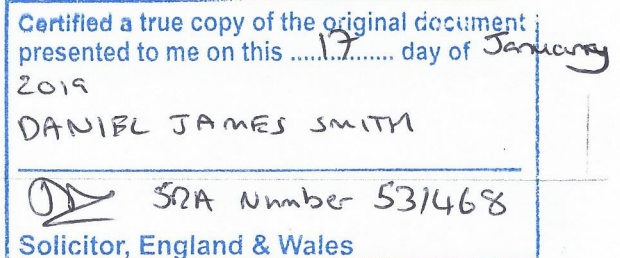 Certified a true copy of the original document
presented to me on this ......17............ day of January
2019
DANIEL JAMES SMITH
SRA Number 531468
Solicitor, England & Wales